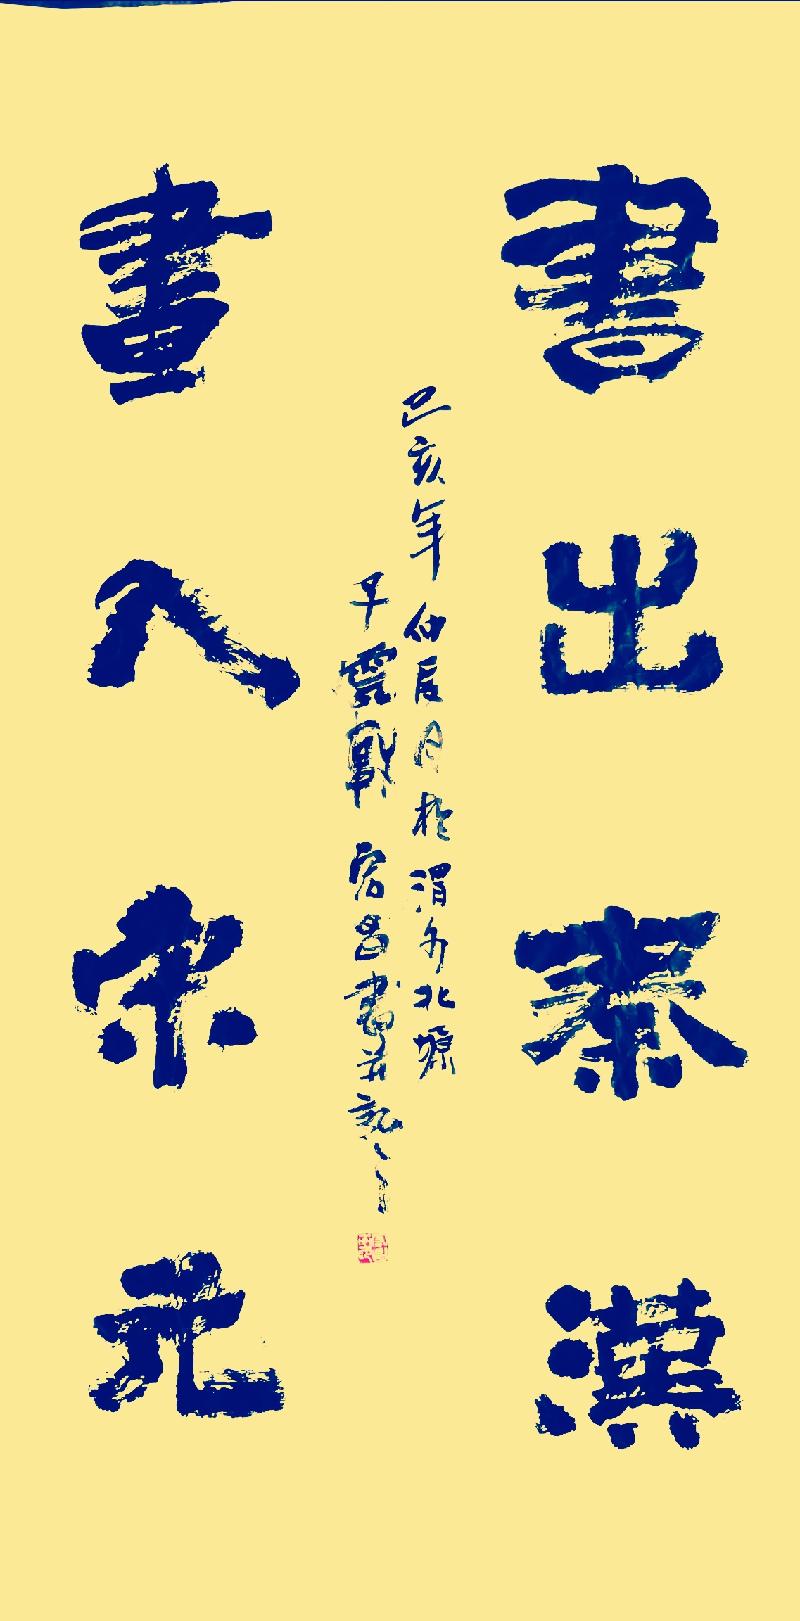 書出秦漢
畫入宋元
己亥年仲辰月於渭水北塬
子雲戰宏昌書并記